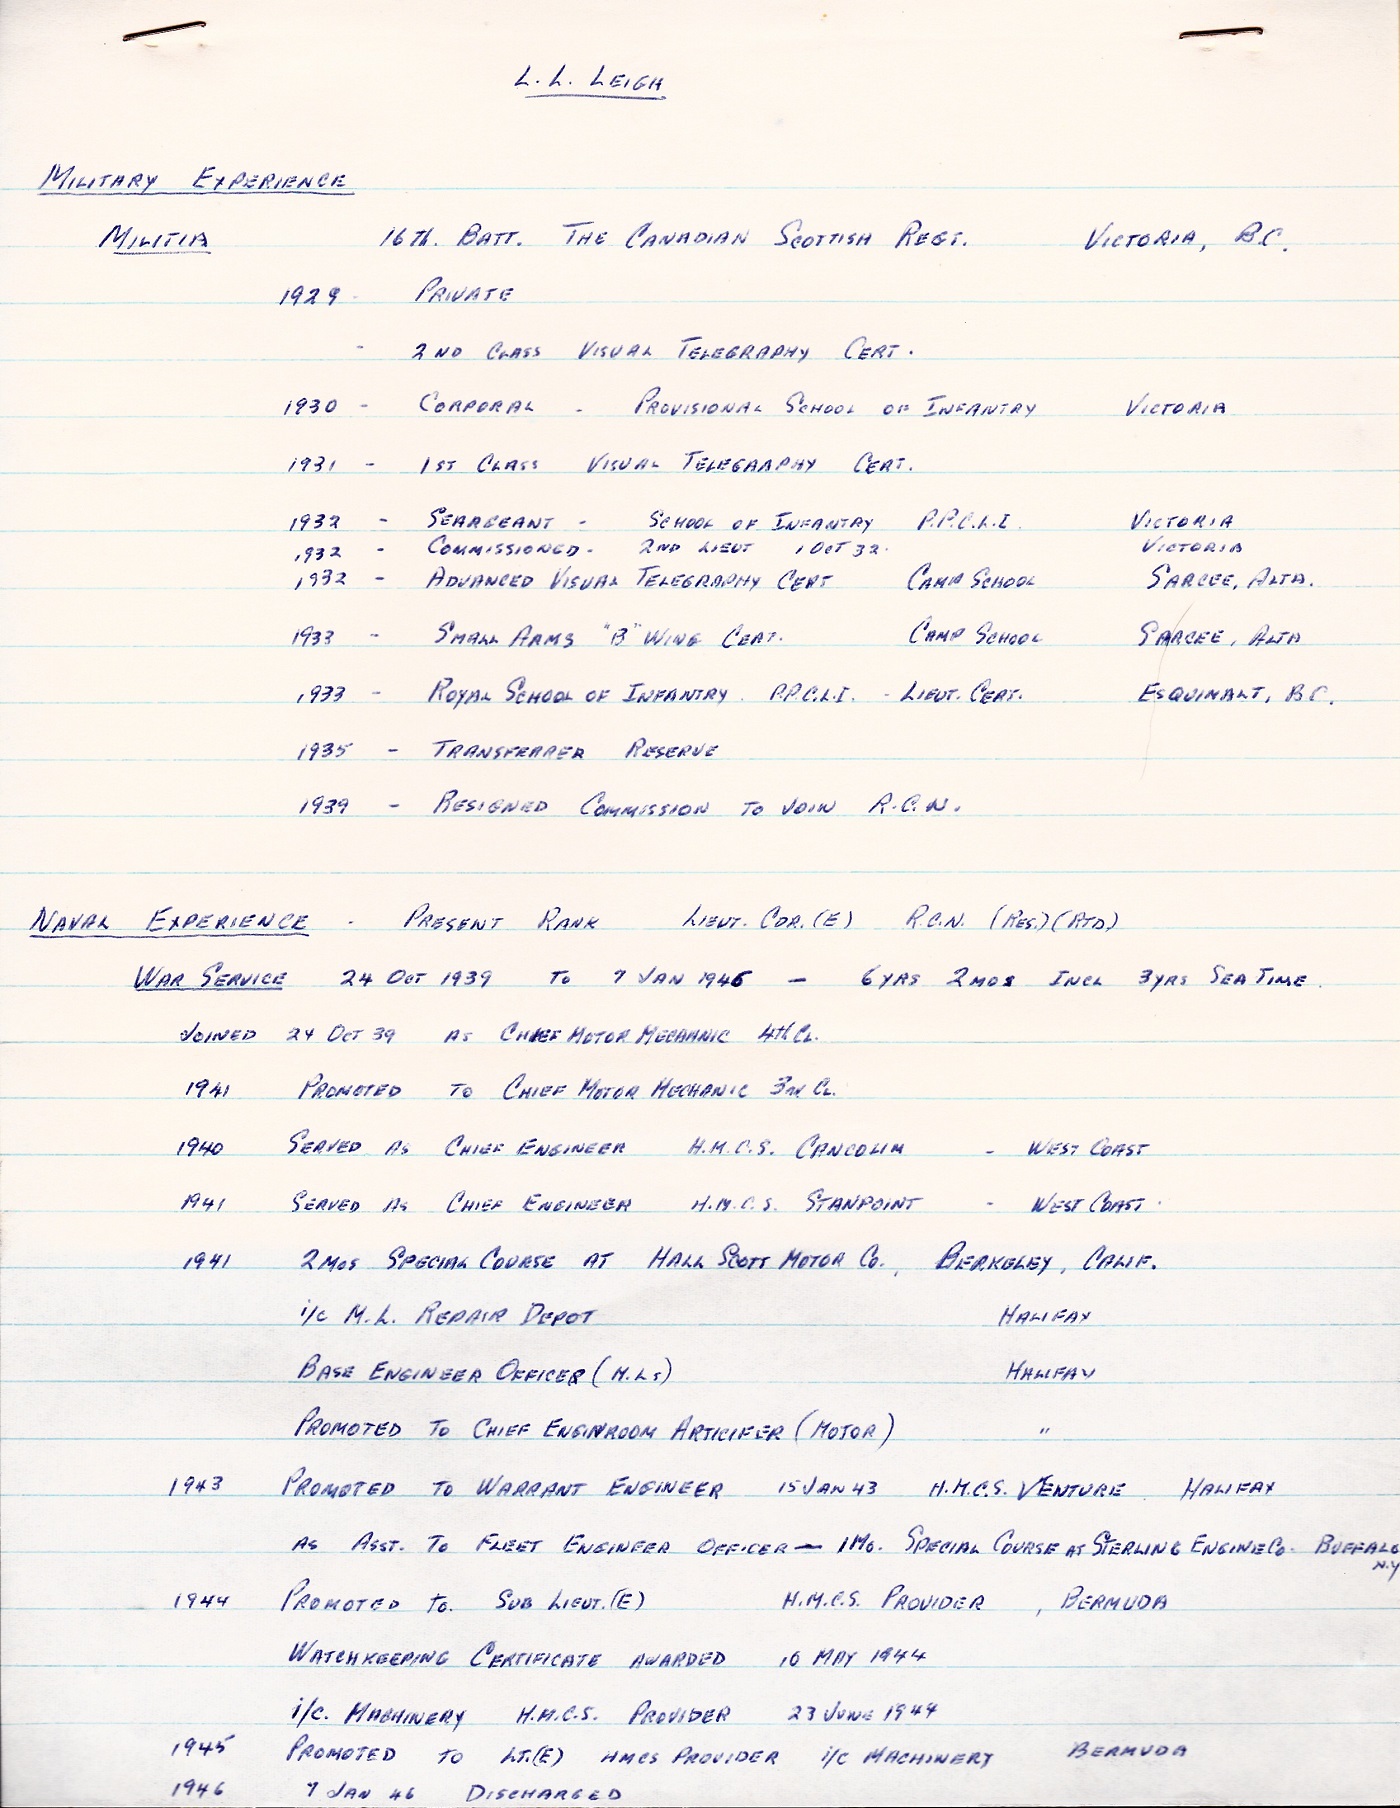 L. L. LEIGH
MILITARY EXPERIENCE
MILITIA 16TH. BATT. THE CANADIAN SCOTTISH REGT. VICTORIA, B.C.
1929 - PRIVATE
- 2ND CLASS VISUAL TELEGRAPHY CERT.
1930 - CORPORAL - PROVISIONAL SCHOOL OF INFANTRY VICTORIA
1931 - 1ST CLASS VISUAL TELEGRAPHY CERT.
1932 - SEARGEANT - SCHOOL OF INFANTRY P.P.C.L.I. VICTORIA
1932 - COMMISSIONED - 2ND LIEUT 1 OCT 32. VICTORIA
1932 - ADVANCED VISUAL TELEGRAPHY CERT CAMP SCHOOL SARCEE, ALTA.
1933 - SMALL ARMS "B" WING CERT. CAMP SCHOOL SARCEE, ALTA
1933 - ROYAL SCHOOL OF INFANTRY. P.P.C.L.I. - LIEUT. CERT. ESQUIMALT, B.C.
1935 - TRANSFERRER RESERVE
1939 - RESIGNED COMMISSION TO JOIN R.C.N.
NAVAL EXPERIENCE - PRESENT RANK LIEUT. CDR.(E) R.C.N. (RES.)(RTD.)
WAR SERVICE 24 OCT 1939 TO 7 JAN 1946 - 6YRS 2MOS INCL 3YRS SEA TIME.
JOINED 24 OCT 39 AS CHIEF MOTOR MECHANIC 4TH CL.
1941 PROMOTED TO CHIEF MOTOR MECHANIC 3RD CL.
1940 SERVED AS CHIEF ENGINEER H.M.C.S. CANCOLIM - WEST COAST
1941 SERVED AS CHIEF ENGINEER H.M.C.S. STANPOINT - WEST COAST.
1941 2MOS SPECIAL COURSE AT HALL SCOTT MOTOR CO., BERKELEY, CALIF.
i/c M.L. REPAIR DEPOT HALIFAX
BASE ENGINEER OFFICER (M.Ls) HALIFAX
PROMOTED TO CHIEF ENGINROOM ARTICIFER (MOTOR) "
1943 PROMOTED TO WARRANT ENGINEER 15 JAN 43 H.M.C.S. VENTURE HALIFAX
AS ASST. TO FLEET ENGINEER OFFICER - 1 MO. SPECIAL COURSE AT STERLING ENGINE CO. BUFFALO
N.Y
1944 PROMOTED TO. SUB LIEUT.(E) H.M.C.S. PROVIDER, BERMUDA
WATCHKEEPING CERTIFICATE AWARDED 16 MAY 1944
i/c. MACHINERY H.M.C.S. PROVIDER 23 JUNE 1944
1945 PROMOTED TO LT.(E) HMCS PROVIDER i/c MACHINERY BERMUDA
1946 7 JAN 46 DISCHARGED